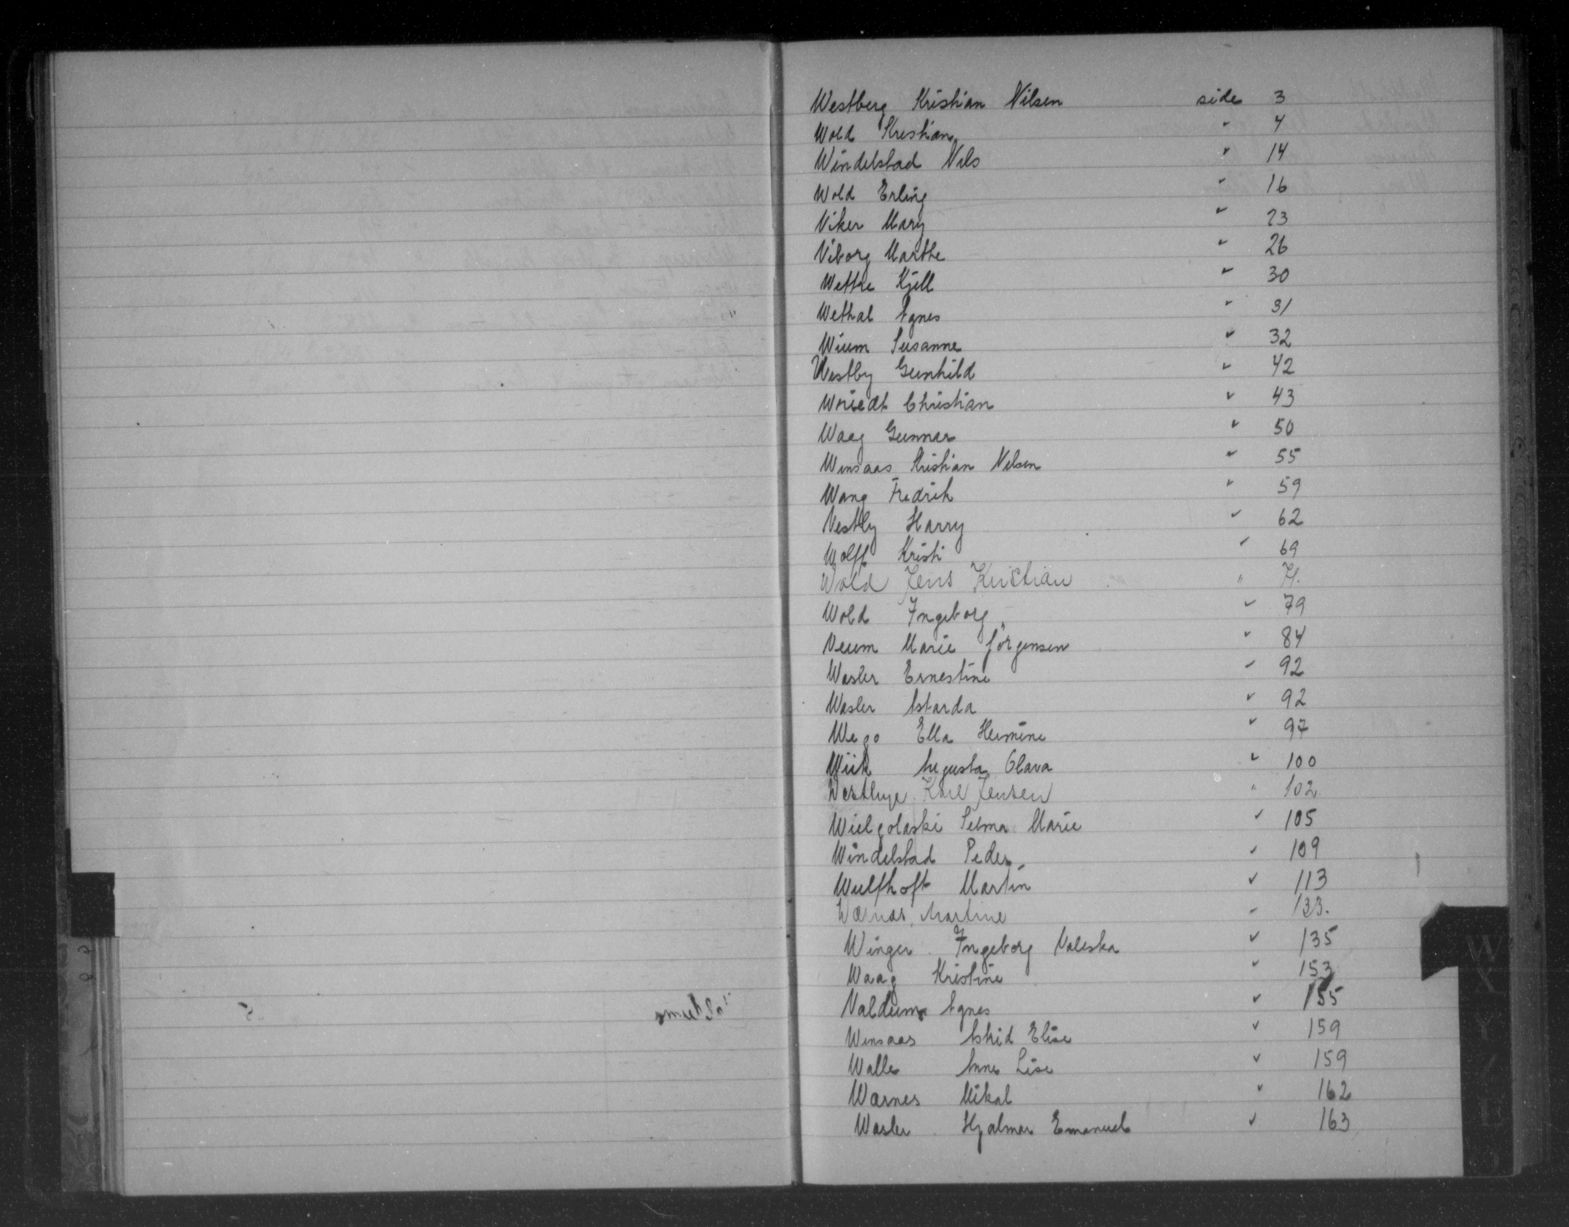 Westberg Kristian Nilsen side 3
Wold Kristian " 4
Windelstad Nils " 14
Wold Erling " 16
Viker Mary " 23
Viborg Marthe " 26
Wettre Kjell " 30
Wethal Agnes " 31
Wium Susanne " 32
Westby Gunhild " 42
Christian " 43
Waag Gunnar " 50
Winsaas Kristian Nilsen " 55
Wang Fredrik " 59
Vestby Harry " 62
Wolff Kristi " 69
Wold Jens Kristian " 71.
Wold Ingeborg " 79
Veum Marie Jörgensen " 84
Wasler Ernestine " 92
Wasler Astarda " 92
Wego Ella Hermine " 97
Wiik Augusta Olava " 100
Karl Jensen " 102
Wielgolaski Selma Marie " 105
Windelstad Peder " 109
Wulfhoft Martin " 113
Wærnes Martine " 133.
Winger Ingeborg Valeska " 135
Waag Kristine " 153
Valdum Agnes " 155
Winsaas Astrid Elise " 159
Walle Anne Lise " 159
Warnes Mikal " 162
Wasler Hjalmar Emanuel " 163
W
X
Y